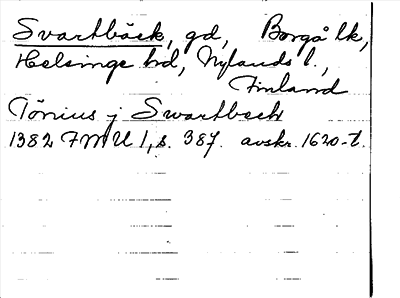 Svartbäck, gd, Borgå lk,
Helsinge hd, Nylands l.,
Finland
Tönius j Swartbeck
1382 FMU 1, s. 387. avskr. 1620-t.